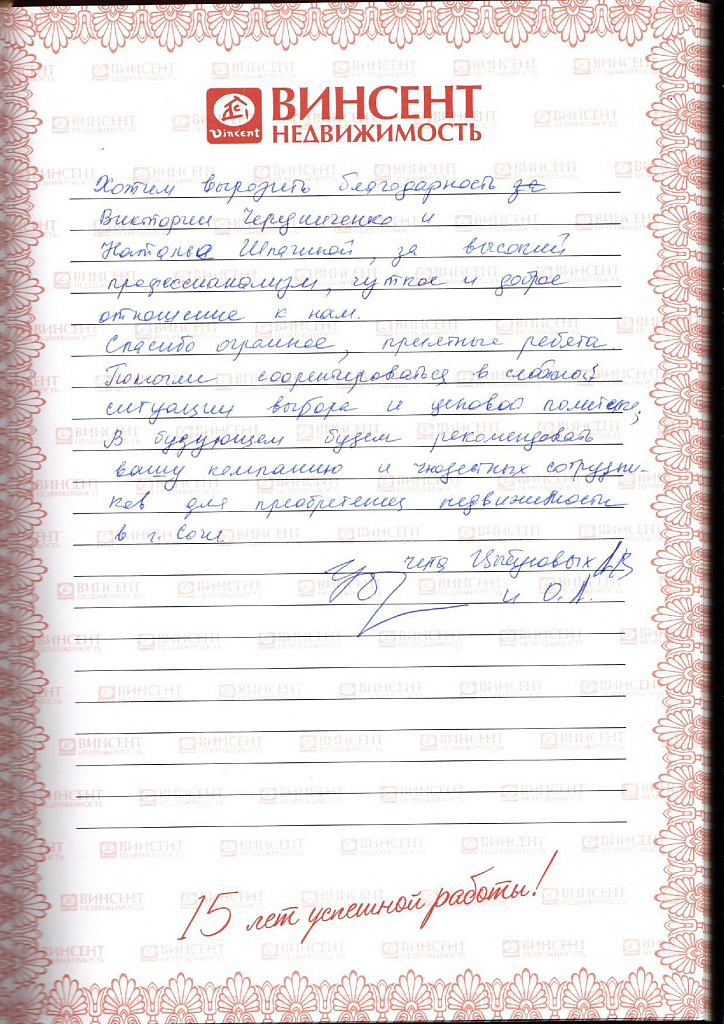 Vincent
ВИНСЕНТ
НЕДВИЖИМОСТЬ
Хотим вырозить благодарность за
Виктории Чередниченко и
Наталье Шпагиной, за высокий
профессианализм, чуткое и доброе
отношение к нам.
Спасибо огромное, приятные ребята.
Помогли соорентироваться в сложной
ситуации выбора и ценовой политеки,
В будующем будем рекомендовать
вашу компанию и чюдестных сотрудни-
ков для преобретения недвижимости
в г. Сочи
чета Цыбуновых
и О.Л.
15 лет успешной работы!